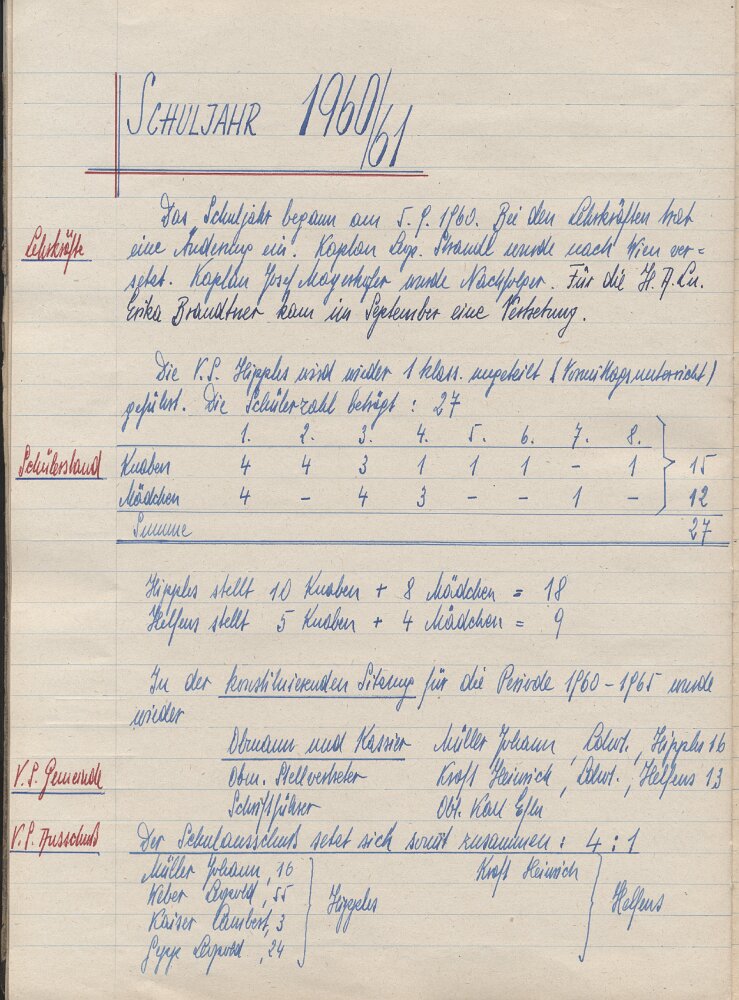 SCHULJAHR 1960/61
Das Schuljahr begann am 5.9.1960. Bei den Lehrkräften trat
Lehrkräfte
eine Änderung ein. Kaplan Strandl wurde nach Wien ver-
setzt. Kaplan Josef Mayerhofer wurde Nachfolger. Für die H.A.Ln.
Erika Brandtner kam im September eine Vertretung.
Die V.S. Hipples wird wieder 1 klass. ungeteilt (Vormittagsunterricht)
geführt. Die Schülerzahl beträgt : 27
1. 2. 3. 4. 5. 6. 7. 8.
Schülerstand
Knaben 4 4 3 1 1 1 - 1 15
Mädchen 4 - 4 3 - - 1 - 12
Summe 27
Hipples stellt 10 Knaben + 8 Mädchen = 18
Helfens stellt 5 Knaben + 4 Mädchen = 9
In der konstituierenden Sitzung für die Periode 1960 - 1965 wurde
wieder
Obmann und Kassier Müller Johann, Ldwt., Hipples 16
V.S. Gemeinde
Obm. Stellvertreter Kraft Heinrich, Ldwt., Helfens 13
Schriftführer Obl. Karl
V.S. Ausschuß
Der Schulausschuß setzt sich somit zusammen : 4 : 1
Müller Johann, 16 Kraft Heinrich
Weber Leopold, 55
Hipples Helfens
Kaiser Lambert, 3
Leopold, 24